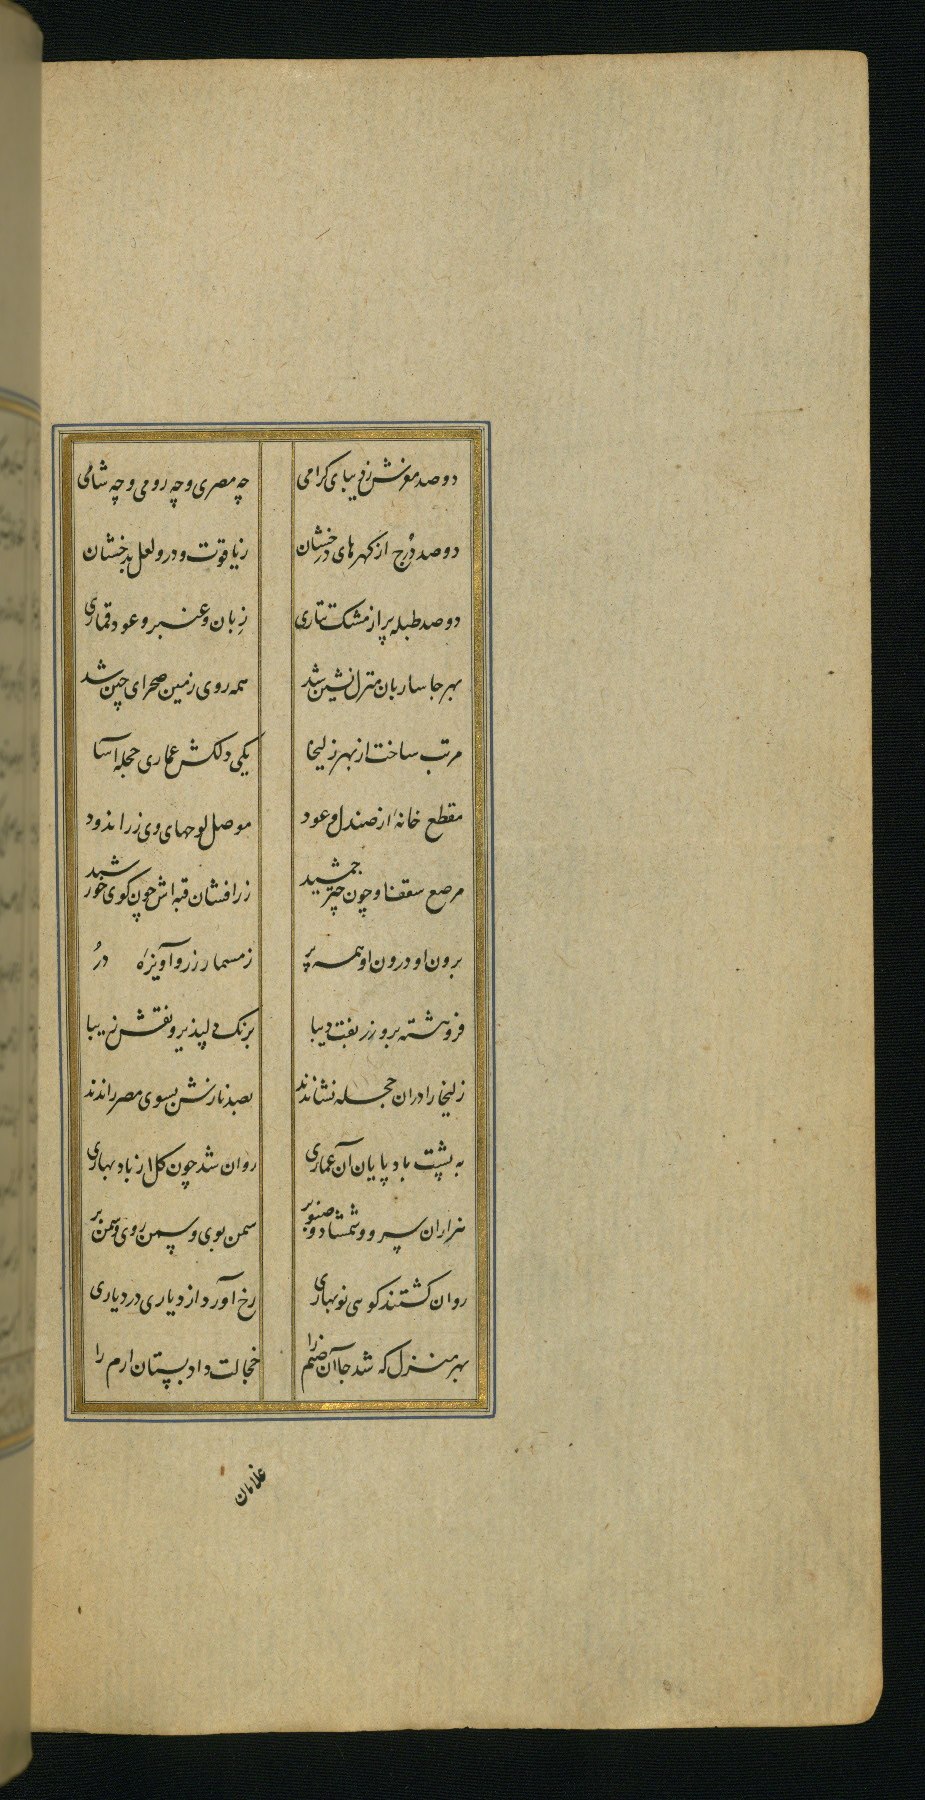 دو صد مفرش ز دیبای کرامی چه مصری و چه رومی و چه شامی
دو صد دُرج از کهرهای درخشان ز یاقوت و در و لعل بدخشان
دو صد طبله پر از مشک تتاری زِ بان و عنبر و عود قماری
بهر جا ساربان منزل نشین شد همه روی زمین صحرای چین شد
مرتب ساخت از بهر زلیخا یکی دلکش عماری حجله آسا
مقطع خانهٔ از صندل و عود موصل لوحهای وی زراندود
مرصع سقف او چون چتر جمشید زرافشان قبه اش چون کوی خورشید
برون او درون او همه پر ز مسمار زر و آویزهٔ دُر
فروهشته برو زربفت دیبا برنک دلپذیر و نقش زیبا
زلیخا را دران حجله نشاندند بصد نازش بسوی مصر راندند
به پشت باد پایان آن عماری روان شد چون کل از باد بهاری
هزاران سرو و شمشاد و صنوبر سمن بوی و سمن روی و سمن بر
روان کشتند کوهی نوبهاری رخ آورد از دیاری در دیاری
بهر منزل که شد جا آن صنم را خجالت داد بستان ارم را
غلامان